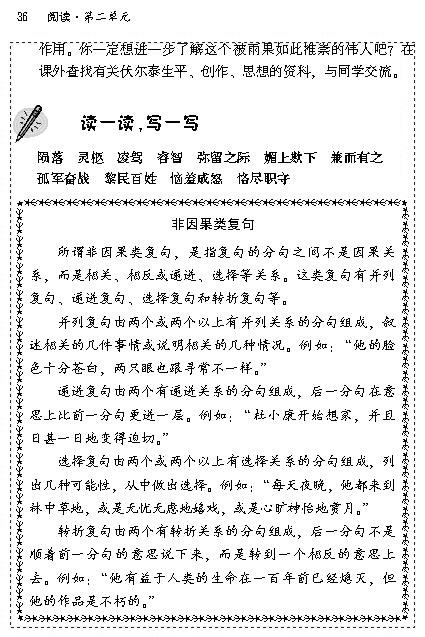 36 阅读·第二单元
作用。你一定想进一步了解这个被雨果如此推崇的伟人吧？在
课外查找有关伏尔泰生平、创作、思想的资料，与同学交流。
读一读，写一写
陨落 灵柩 凌驾 睿智 弥留之际 媚上欺下 兼而有之
孤军奋战 黎民百姓 恼羞成怒 恪尽职守
非因果类复句
所谓非因果类复句，是指复句的分句之间不是因果关
系，而是相关、相反或递进、选择等关系。这类复句有并列
复句、递进复句、选择复句和转折复句等。
并列复句由两个或两个以上有并列关系的分句组成，叙
述相关的几件事情或说明相关的几种情况。例如：“他的脸
色十分苍白，两只眼也跟寻常不一样。”
递进复句由两个有递进关系的分句组成，后一分句在意
思上比前一分句更进一层。例如：“杜小康开始想家，并且
日甚一日地变得迫切。”
选择复句由两个或两个以上有选择关系的分句组成，列
出几种可能性，从中做出选择。例如：“每天夜晚，他都来到
林中草地，或是无忧无虑地嬉戏，或是心旷神怡地赏月。”
转折复句由两个有转折关系的分句组成，后一分句不是
顺着前一分句的意思说下来，而是转到一个相反的意思上
去。例如：“他有益于人类的生命在一百年前已经熄灭，但
他的作品是不朽的。”